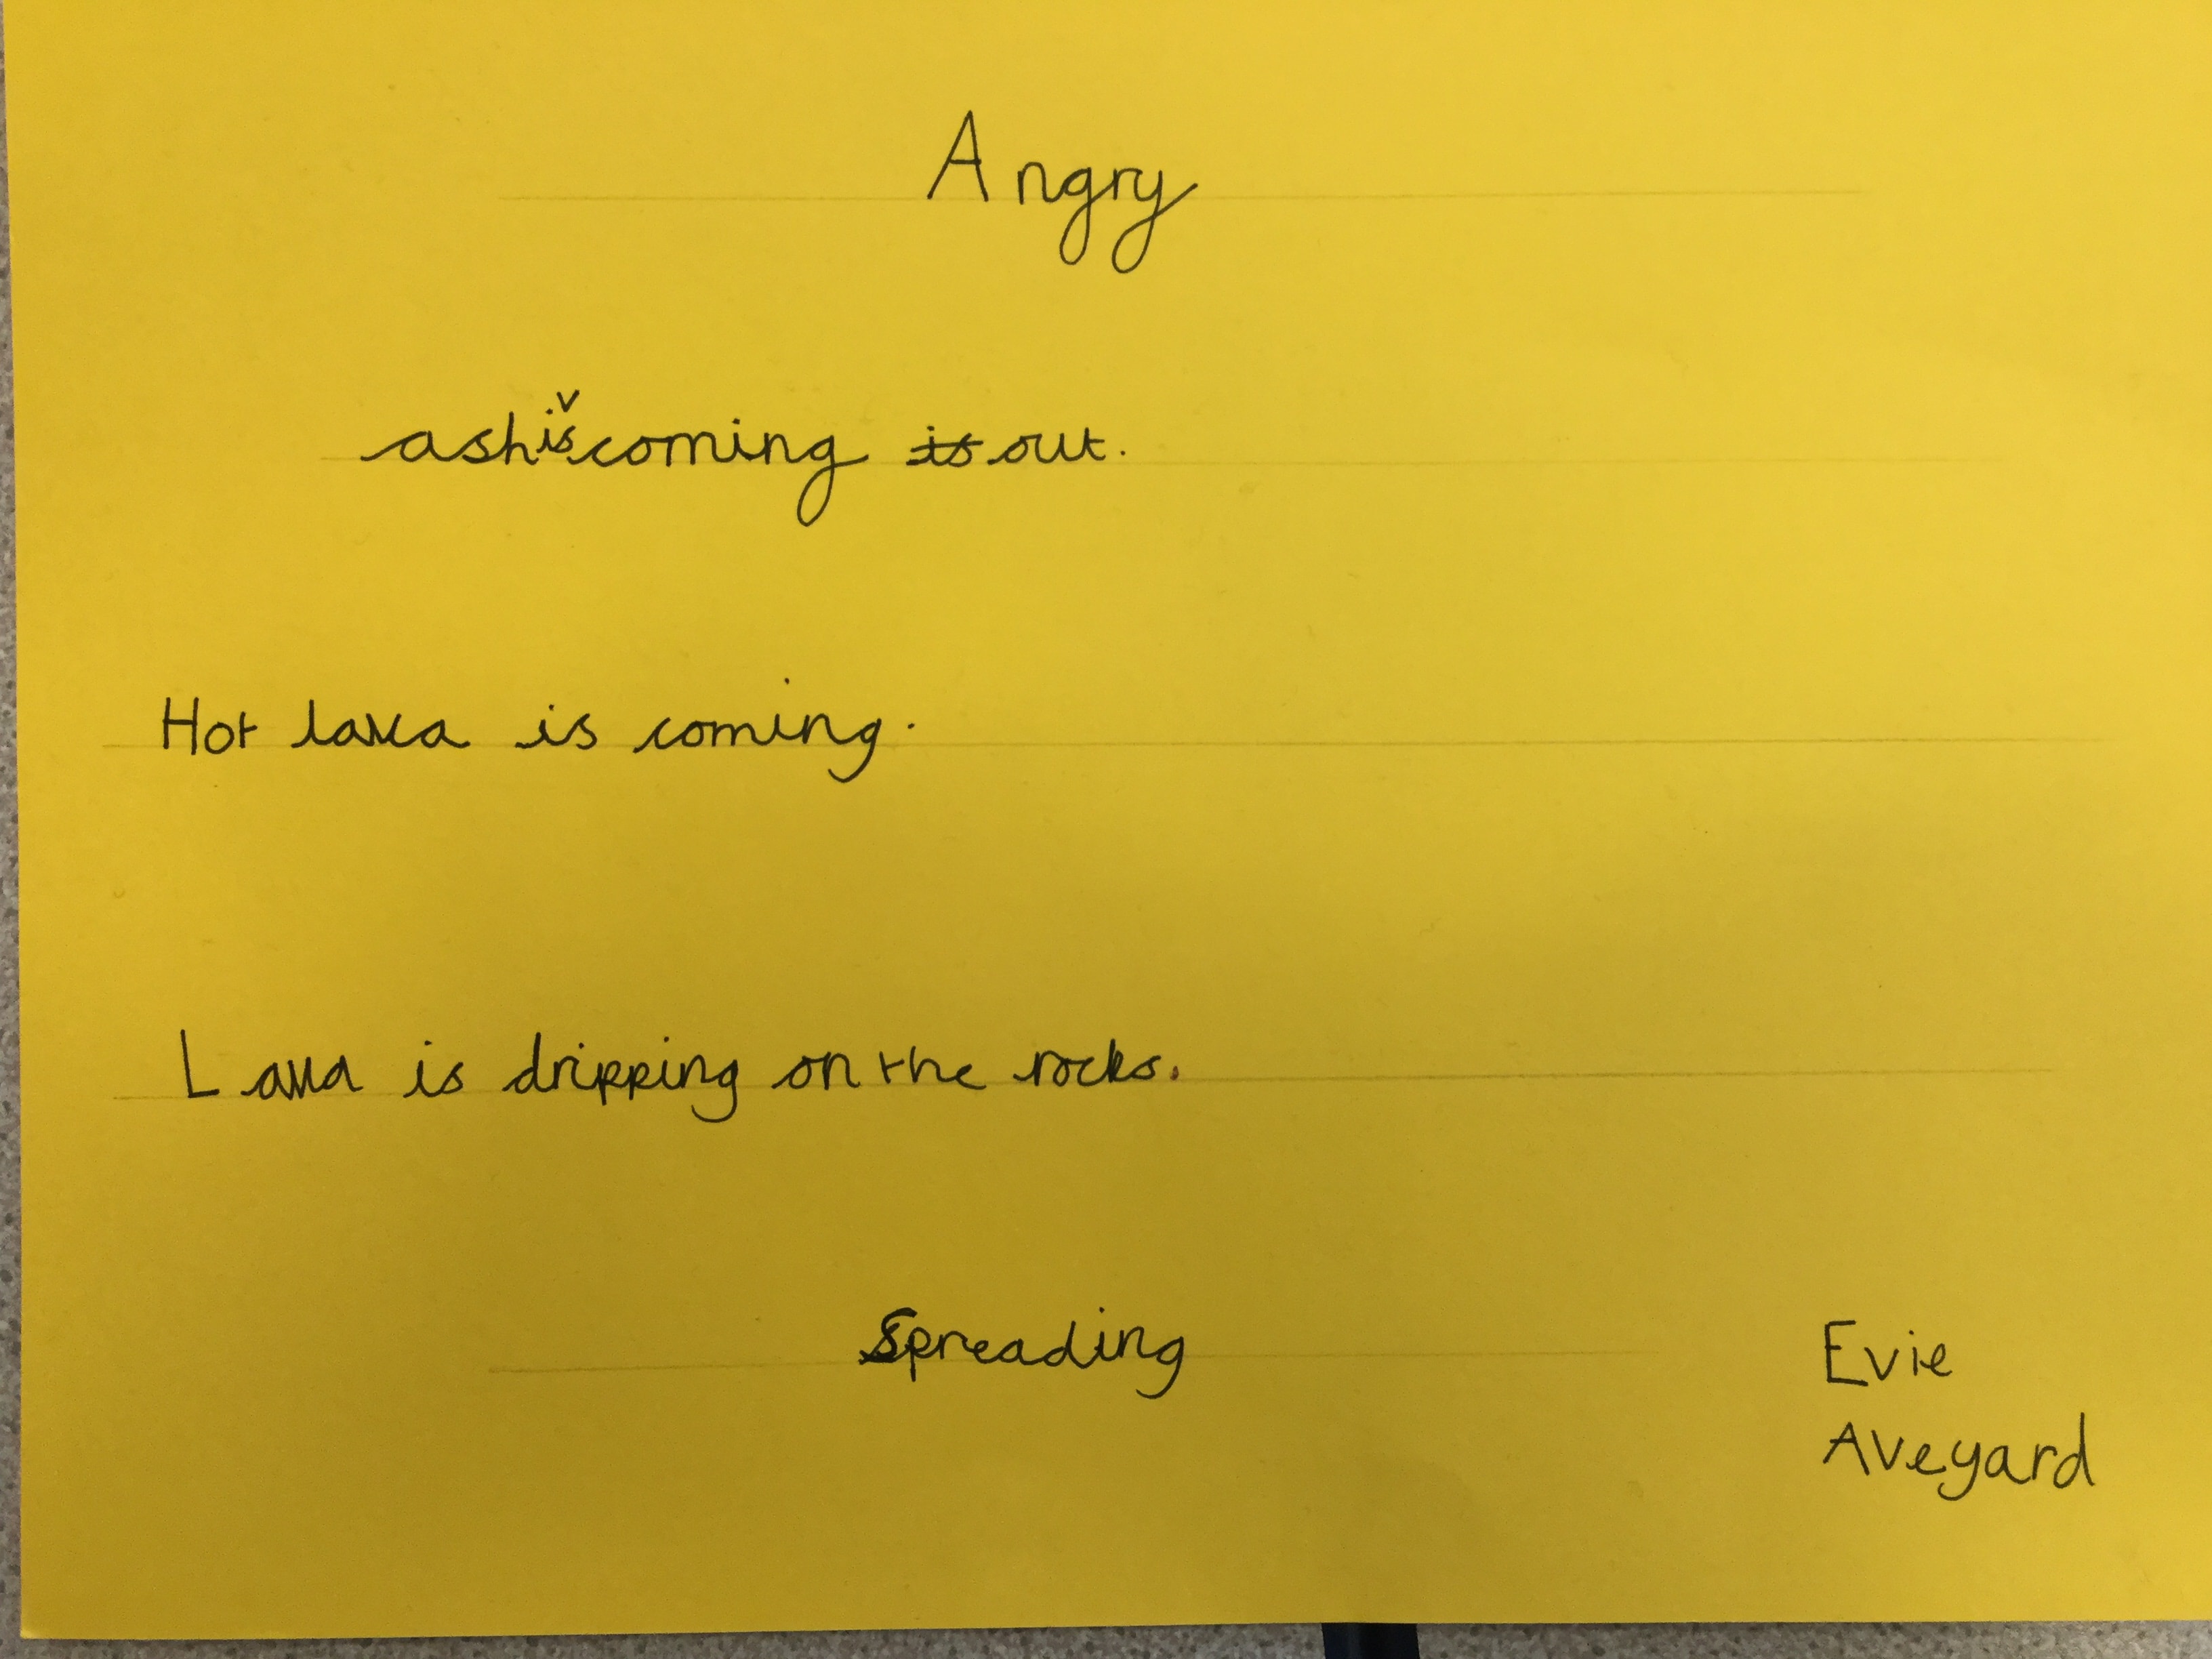 Angry
ash is coming is out.
Hot lava is coming.
Lava is dripping on the rocks.
Spreading
Evie
Aveyard